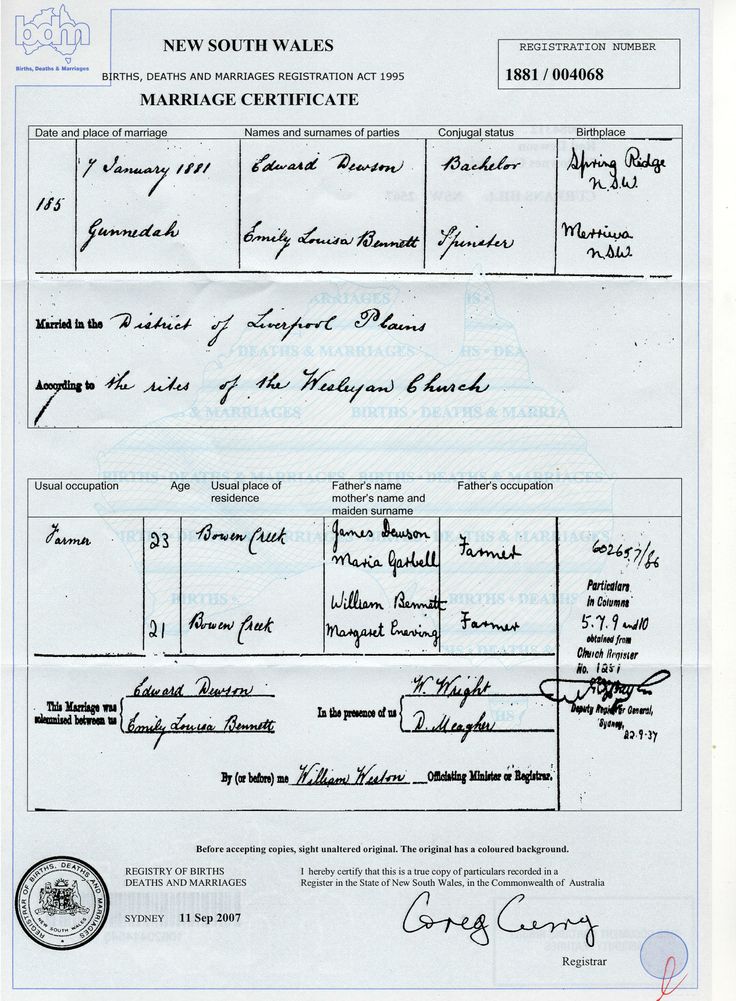 bdm
Births, Deaths & Marriages
NEW SOUTH WALES
BIRTHS, DEATHS AND MARRIAGES REGISTRATION ACT 1995
MARRIAGE CERTIFICATE
REGISTRATION NUMBER
1881 / 004068
Date and place of marriage Names and surnames of parties Conjugal status Birthplace
7 January 1881 Edward Dewson Bachelor Spring Ridge
N.S.W.
185
Gunnedah Emily Louisa Bennett Spinster Merriwa
N.S.W.
Married in the District of Liverpool Plains
According to the rites of the Wesleyan Church
Usual occupation Age Usual place of residence Father's name mother's name and maiden surname Father's occupation
Farmer 23 Bowen Creek James Dewson Farmer
Maria Garbell
William Bennett
21 Bowen Creek Margaret Farmer
602657/86
Particulars
in Columns
5.7.9 and 10
obtained from
Church Register
No. 1251
Deputy Registrar General,
Sydney,
22.9.37
This Marriage was solemnised between us
Edward Dewson
Emily Louisa Bennett
In the presence of us
W. Wright
D. Meagher
By (or before) me William Weston Officiating Minister or Registrar.
Before accepting copies, sight unaltered original. The original has a coloured background.
REGISTRAR OF BIRTHS, DEATHS AND MARRIAGES
NEW SOUTH WALES
REGISTRY OF BIRTHS
DEATHS AND MARRIAGES
SYDNEY 11 Sep 2007
I hereby certify that this is a true copy of particulars recorded in a
Register in the State of New South Wales, in the Commonwealth of Australia
Greg Curry
Registrar